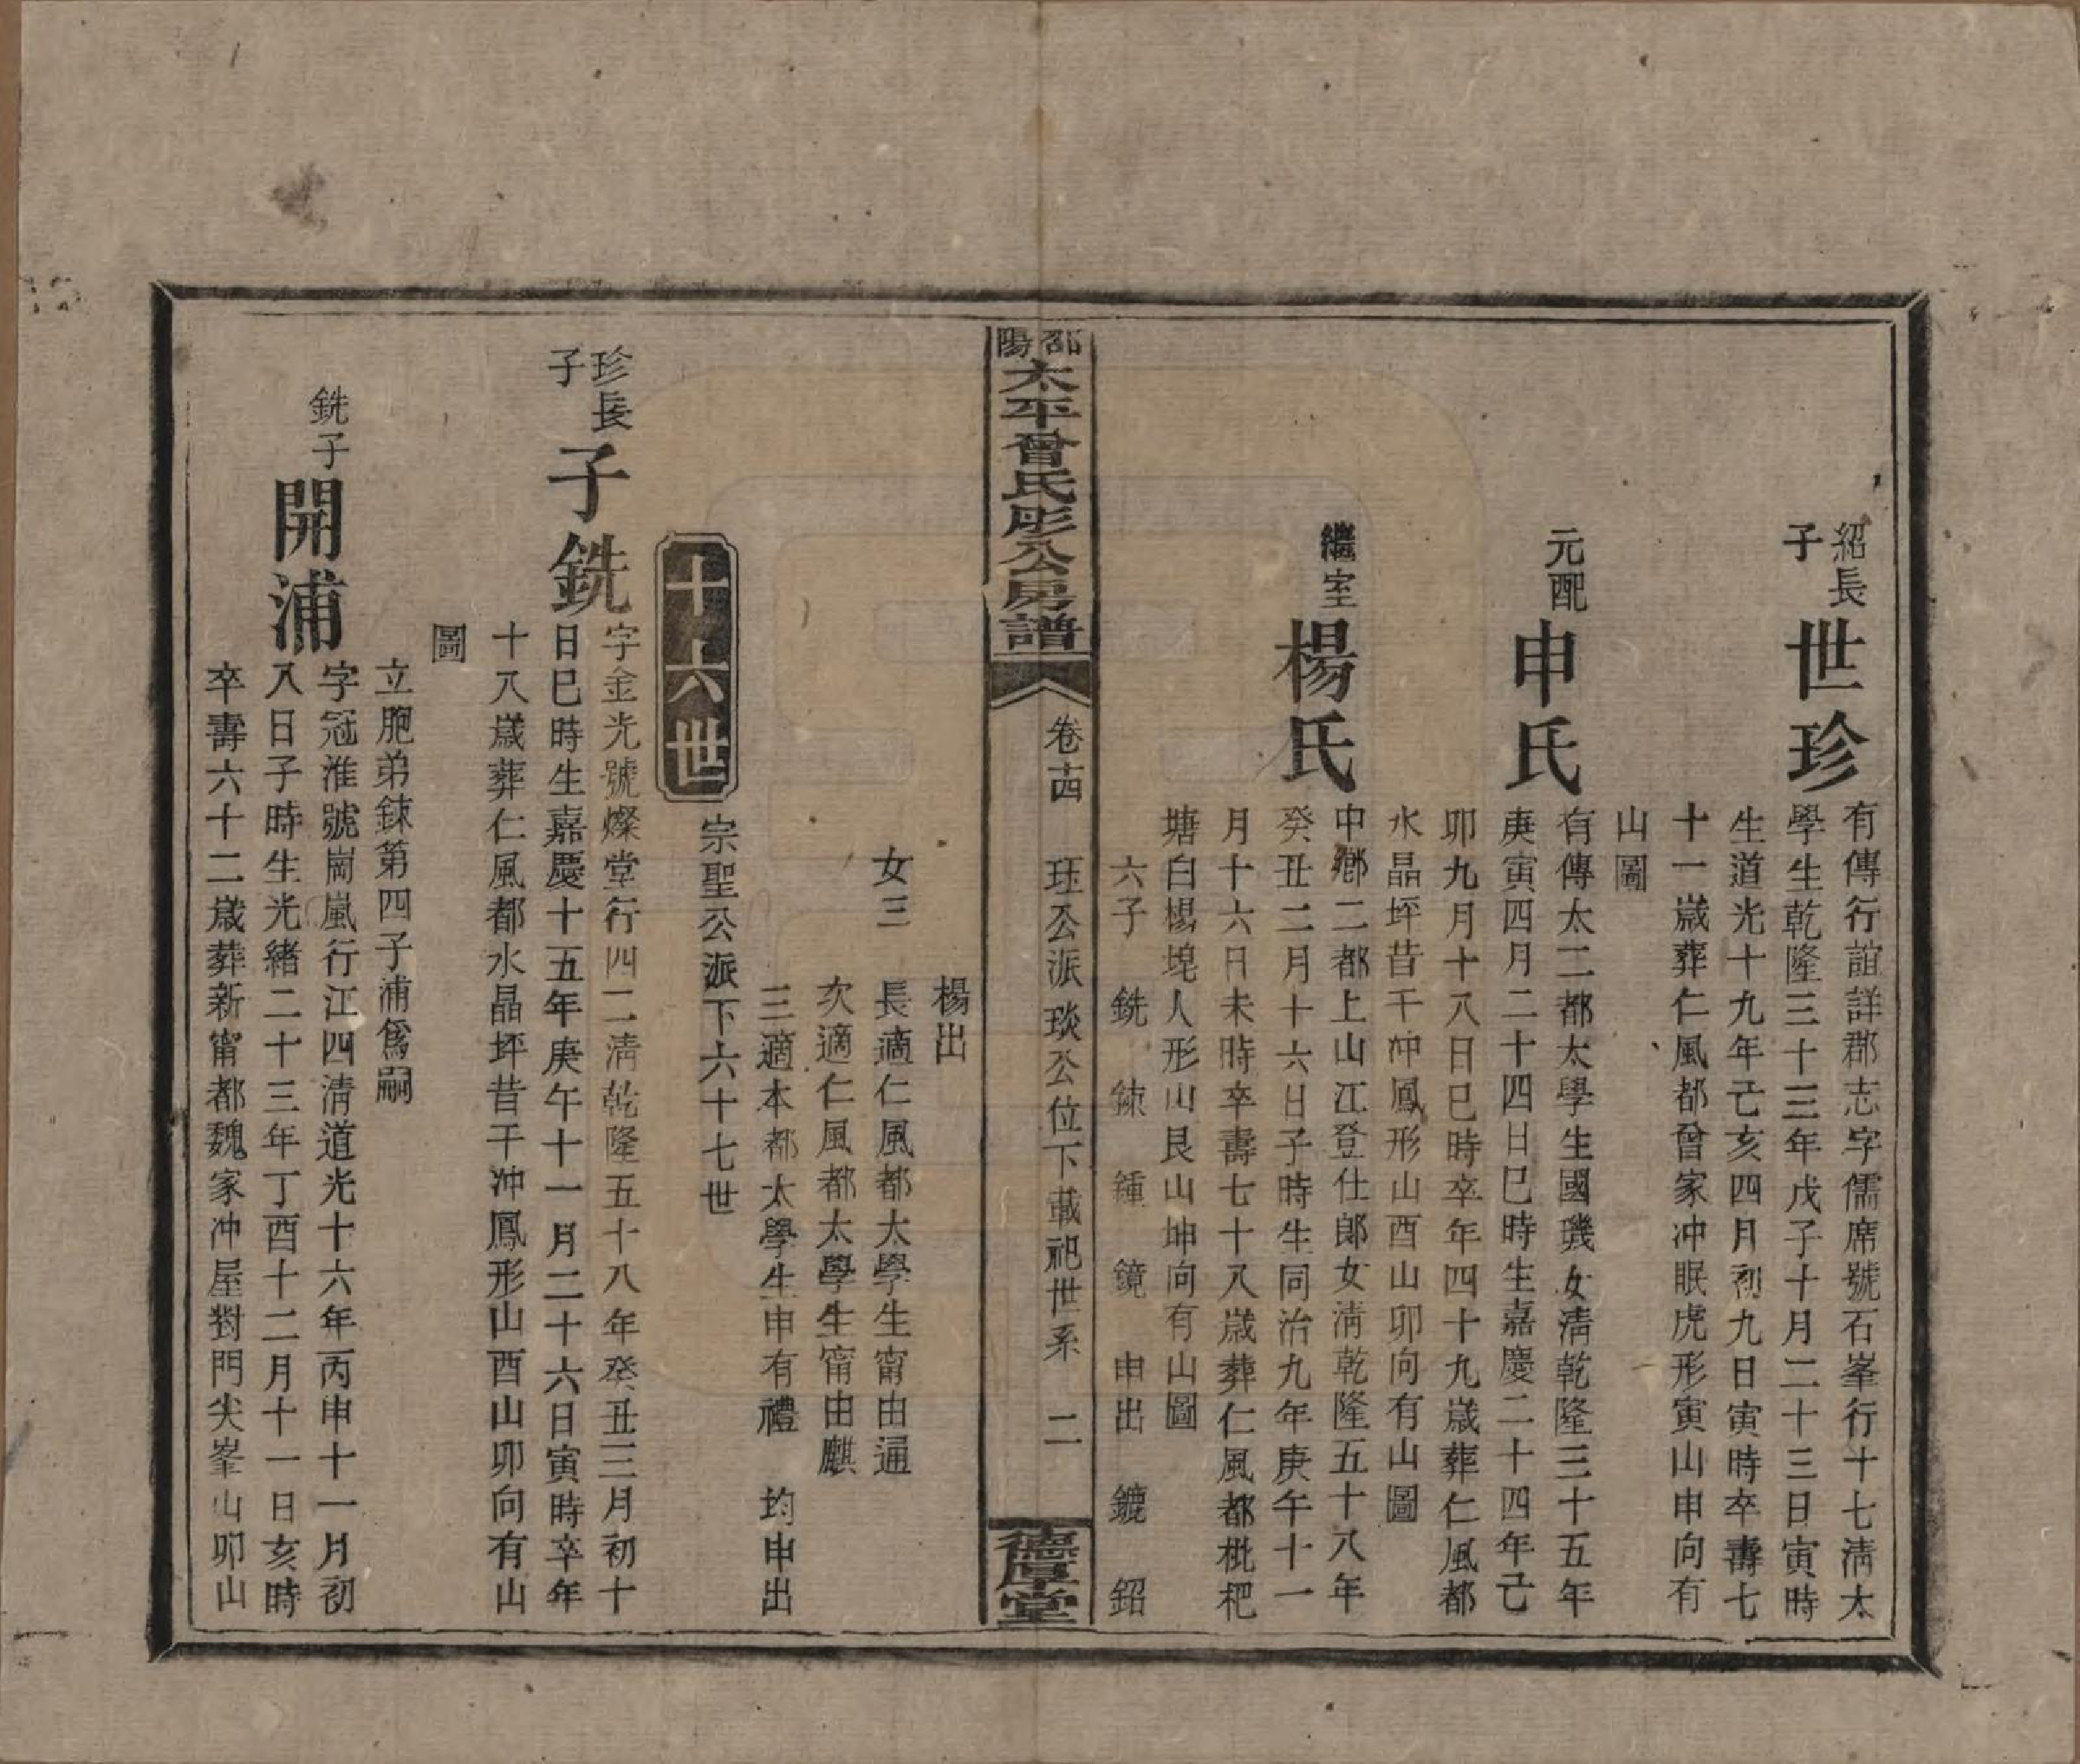 紹長
子
世珍
有傳行誼詳郡志字儒席號石峯行十七淸太
學生乾隆三十三年戊子十月二十三日寅時
生道光十九年己亥四月初九日寅時卒壽七
十一歲葬仁風都曾家冲眠虎形寅山申向有
山圖
元配
申氏
有傳太二都太學生國璣女淸乾隆三十五年
庚寅四月二十四日巳時生嘉慶二十四年己
卯九月十八日巳時卒年四十九歲葬仁風都
水晶坪昔干冲鳳形山酉山卯向有山圖
繼室
楊氏
中鄉二都上山江登仕郎女淸乾隆五十八年
癸丑二月十六日子時生同治九年庚午十一
月十六日未時卒壽七十八歲葬仁風都枇杷
塘白楊堍人形山艮山坤向有山圖
六子 銑 鋉 鍾 鏡 申出 鑣 鉊
邵陽
太平曾氏彤公房譜
卷十四 珏公派琰公位下載祀世系 二
德厚堂
楊出
女三 長適仁風都太學生甯由通
次適仁風都太學生甯由麒
三適本都太學生申有禮 均申出
宗聖公派下六十七世
十六世
珍長
子
子銑
字金光號燦堂行四二淸乾隆五十八年癸丑三月初十
日巳時生嘉慶十五年庚午十一月二十六日寅時卒年
十八歲葬仁風都水晶坪昔干冲鳳形山酉山卯向有山
圖
立胞弟鋉第四子浦爲嗣
銑子
開浦
字冠淮號崗嵐行江四淸道光十六年丙申十一月初
八日子時生光緖二十三年丁酉十二月十一日亥時
卒壽六十二歲葬新甯都魏家冲屋對門尖峯山卯山